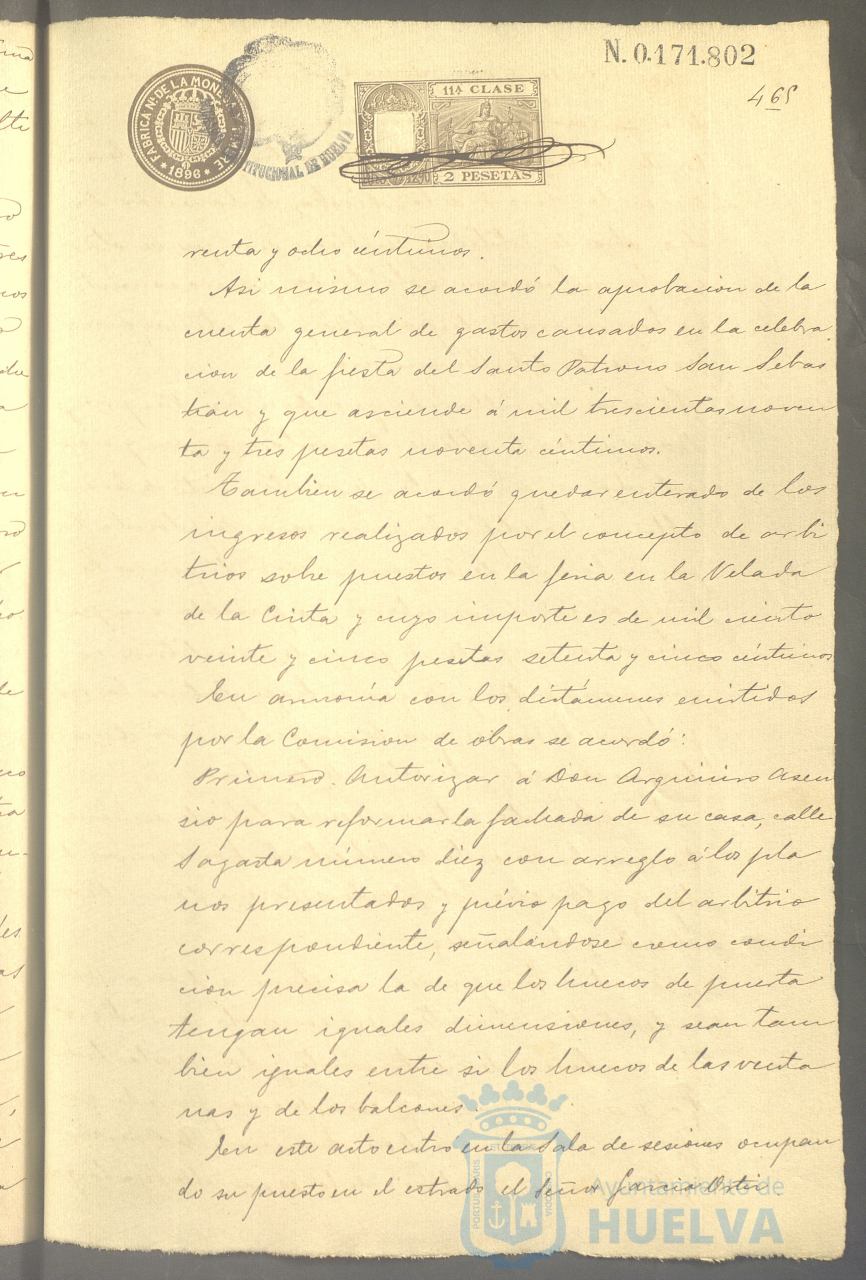 N. 0.171.802
465
FÁBRICA NL. DE LA MONEDA Y TIMBRE
* 1896 *
TITUCIONAL DE HUELVA
11ª CLASE
2 PESETAS
renta y ocho céntimos.
Asi mismo se acordó la aprobacion de la
cuenta general de gastos causados en la celebra
cion de la fiesta del Santo Patrono San Sebas
tián y que asciende á mil trescientas noven
ta y tres pesetas noventa céntimos.
Tambien se acordó quedar enterado de los
ingresos realizados por el concepto de arbi
trios sobre puestos en la feria en la Velada
de la Cinta y cuyo importe es de mil ciento
veinte y cinco pesetas setenta y cinco céntimos
En armonía con los dictámenes emitidos
por la Comision de obras se acordó:
Primero. Autorizar á Don Argimiro Asen
sio para reformar la fachada de su casa, calle
Sagasta número diez con arreglo á los pla
nos presentados y prévio pago del arbitrio
correspondiente, señalándose como condi
cion precisa la de que los huecos de puerta
tengan iguales dimensiones, y sean tam
bien iguales entre si los huecos de las venta
nas y de los balcones.
En este acto entro en la Sala de sesiones ocupan
do su puesto en el estrado el Señor Garcia Ortiz.
Ayuntamiento de
HUELVA